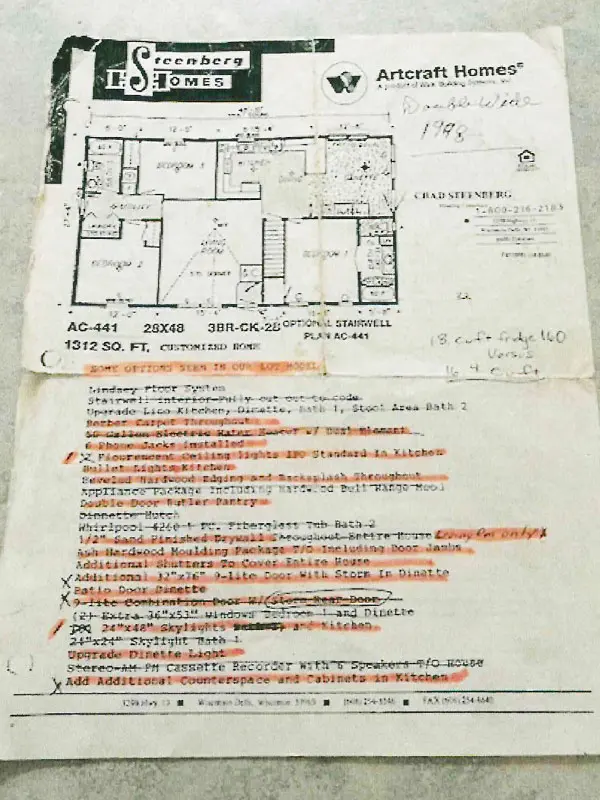 Steenberg
HOMES
Artcraft Homes®
Double Wide
1998
BEDROOM 3
KITCHEN
DINING
DINETTE
UTILITY
CHAD STEENBERG
1-800-216-2183
LIVING
ROOM
BEDROOM 2
BEDROOM 1
32
AC-441 28X48 3BR-CK-2B OPTIONAL STAIRWELL
PLAN AC-441
1312 SQ. FT, CUSTOMIZED HOME
18 cu ft fridge 160
Versus
16.4 cu ft
SOME OPTIONS SEEN IN OUR LOT MODEL
Lindsey Floor System
Stairwell interior-Fully cut out to code
Upgrade Lino Kitchen, Dinette, Bath 1, Stool Area Bath 2
Berber Carpet Throughout
50 Gallon Electric Water Heater w/ Dual Element
6 Phone Jacks Installed
X Flourescent Ceiling lights IPO Standard in Kitchen
Bullet Lights Kitchen
Beveled Hardwood Edging and Backsplash Throughout
Appliance Package Including Hardwood Bull Range Hood
Double Door Butler Pantry
Dinnette Hutch
Whirlpool 4260 1 PC. Fiberglass Tub Bath 2
1/2" Sand Finished Drywall Throughout Entire House Living Rm only X
Ash Hardwood Moulding Package T/O Including Door Jambs
Additional Shutters To Cover Entire House
X Additional 32"x76" 9-lite Door With Storm In Dinette
Patio Door Dinette
X 9-lite Combination Door W/ Storm Rear Door
(2) Extra 36"x53" Windows Bedroom 1 and Dinette
24"x48" Skylights and Kitchen
24"x24" Skylight Bath 1
Upgrade Dinette Light
Stereo-AM FM Cassette Recorder With 6 Speakers T/O House
X Add Additional Counterspace and Cabinets in Kitchen
Wisconsin Dells, Wisconsin